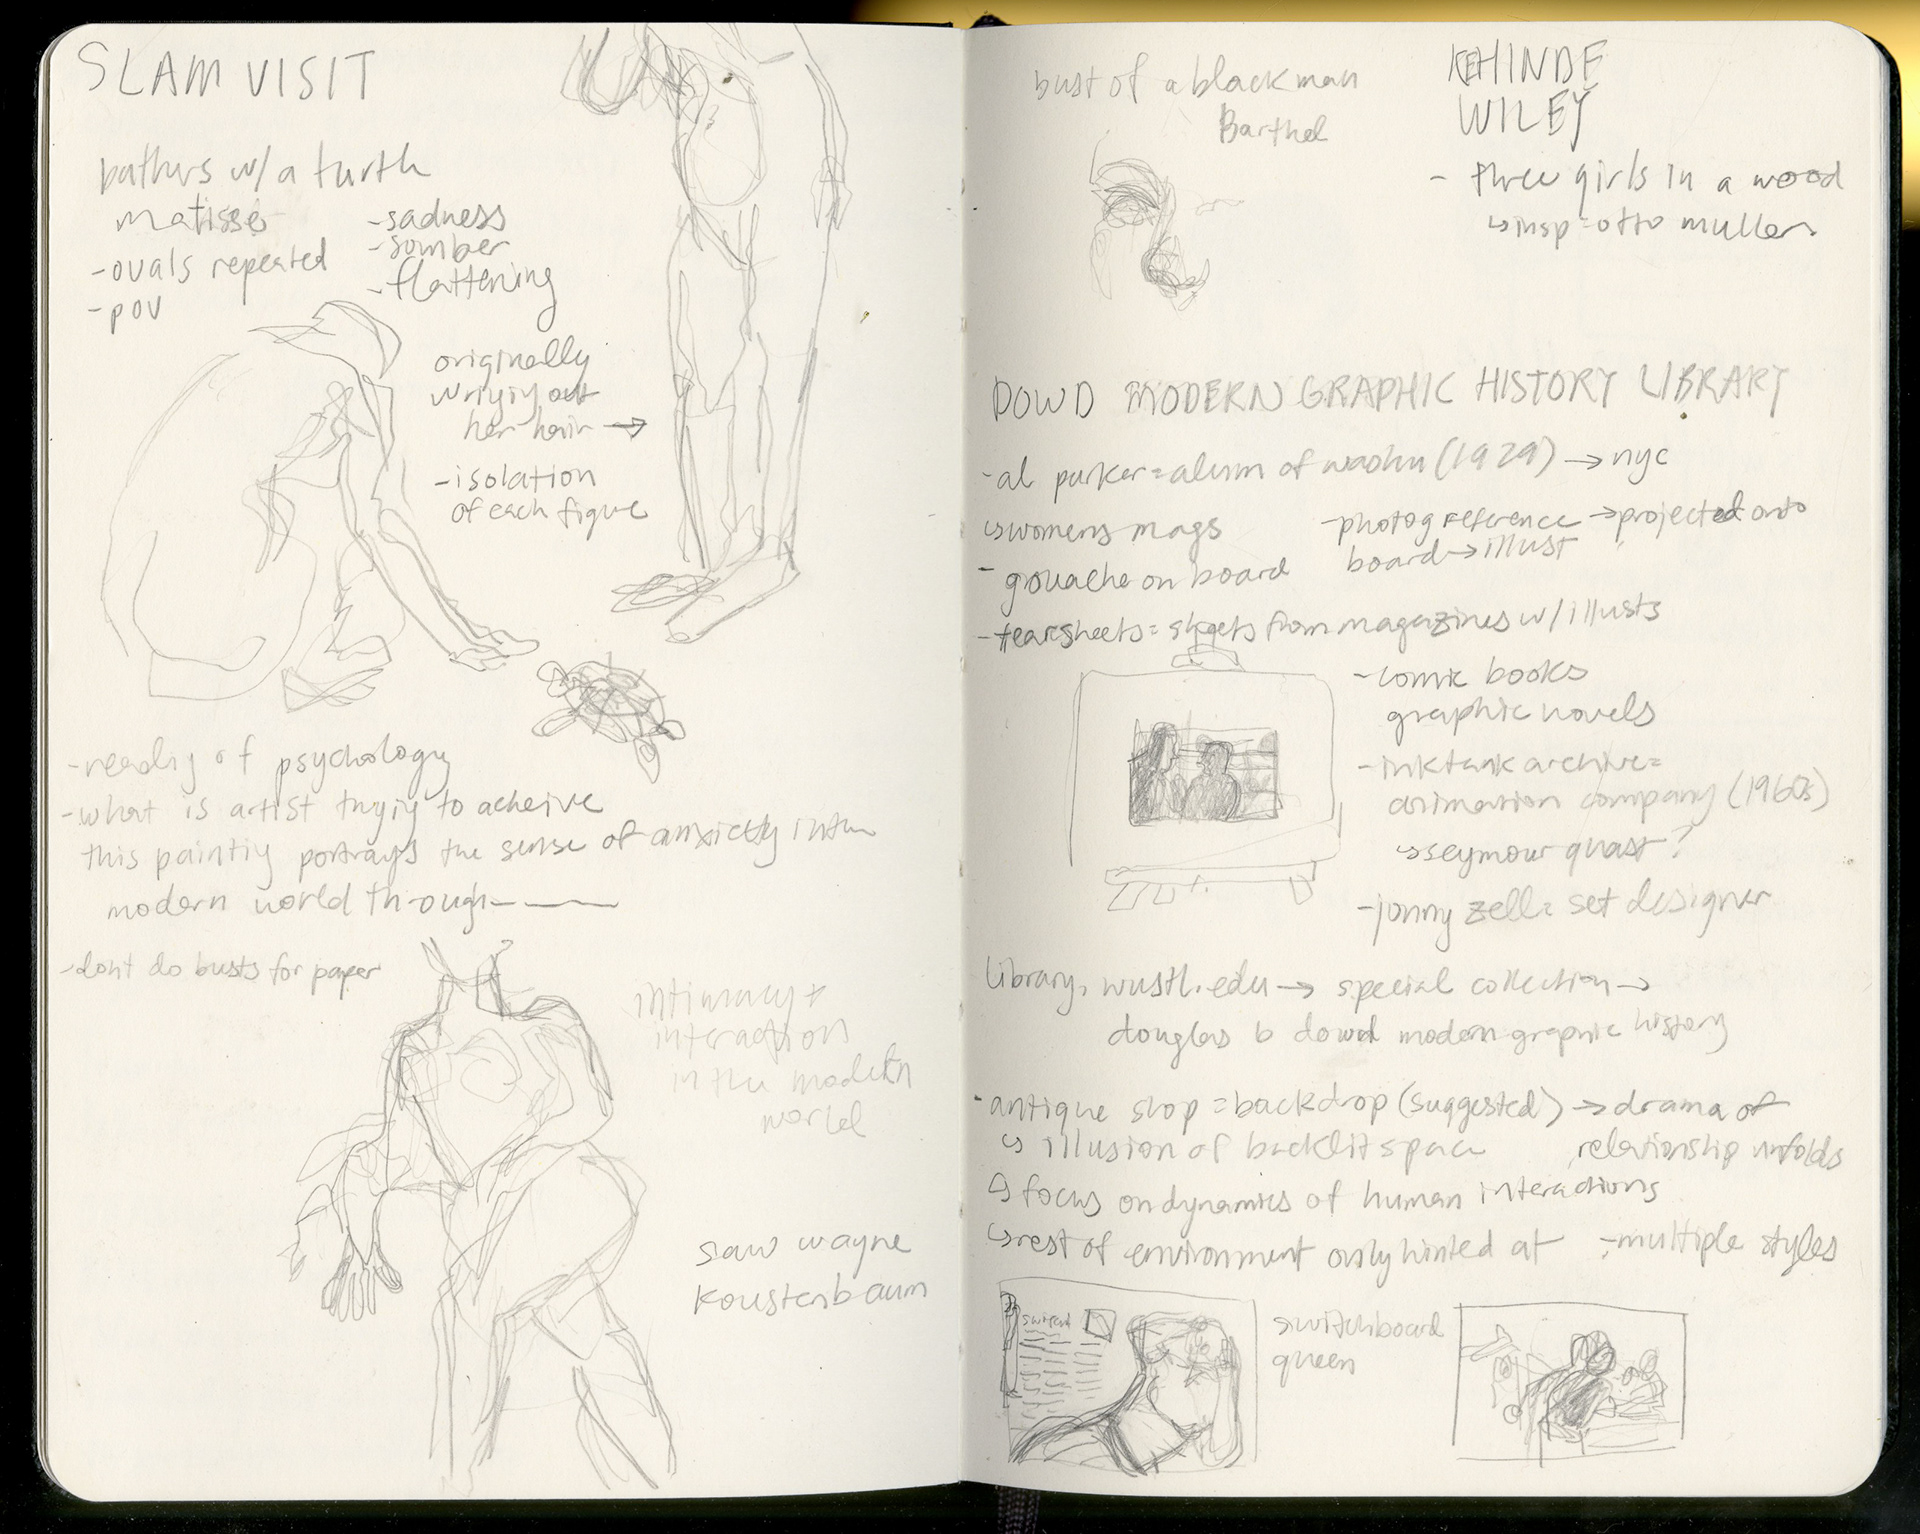 SLAM VISIT
bathers w/ a turtle
matisse
-ovals repeated
-pov
-sadness
-somber
-flattening
originally
wringing out
her hair →
-isolation
of each figure
-reading of psychology
-what is artist trying to acheive
this painting portrays the sense of anxiety in the
modern world through-———
-dont do busts for paper
intimacy +
interaction
in the modern
world
saw wayne
koustenbaum
bust of a black man
Barthel
KEHINDE
WILEY
- three girls in a wood
↳insp=otto muller
DOWD MODERN GRAPHIC HISTORY LIBRARY
-al parker=alum of washu (1929) → nyc
↳womens mags
-gouache on board
-photog reference →projected onto
board→illust
-tearsheets= sheets from magazines w/ illusts
-comic books
graphic novels
-inktank archive=
animation company (1960s)
↳seymour quast?
-jonny zell= set designer
library.wustl.edu → special collection →
douglas b dowd modern graphic history
-antique shop =backdrop (suggested) →drama of
relationship unfolds
↳ illusion of backlit space
↳ focus on dynamics of human interactions
↳rest of environment only hinted at
-multiple styles
switchboard
queen